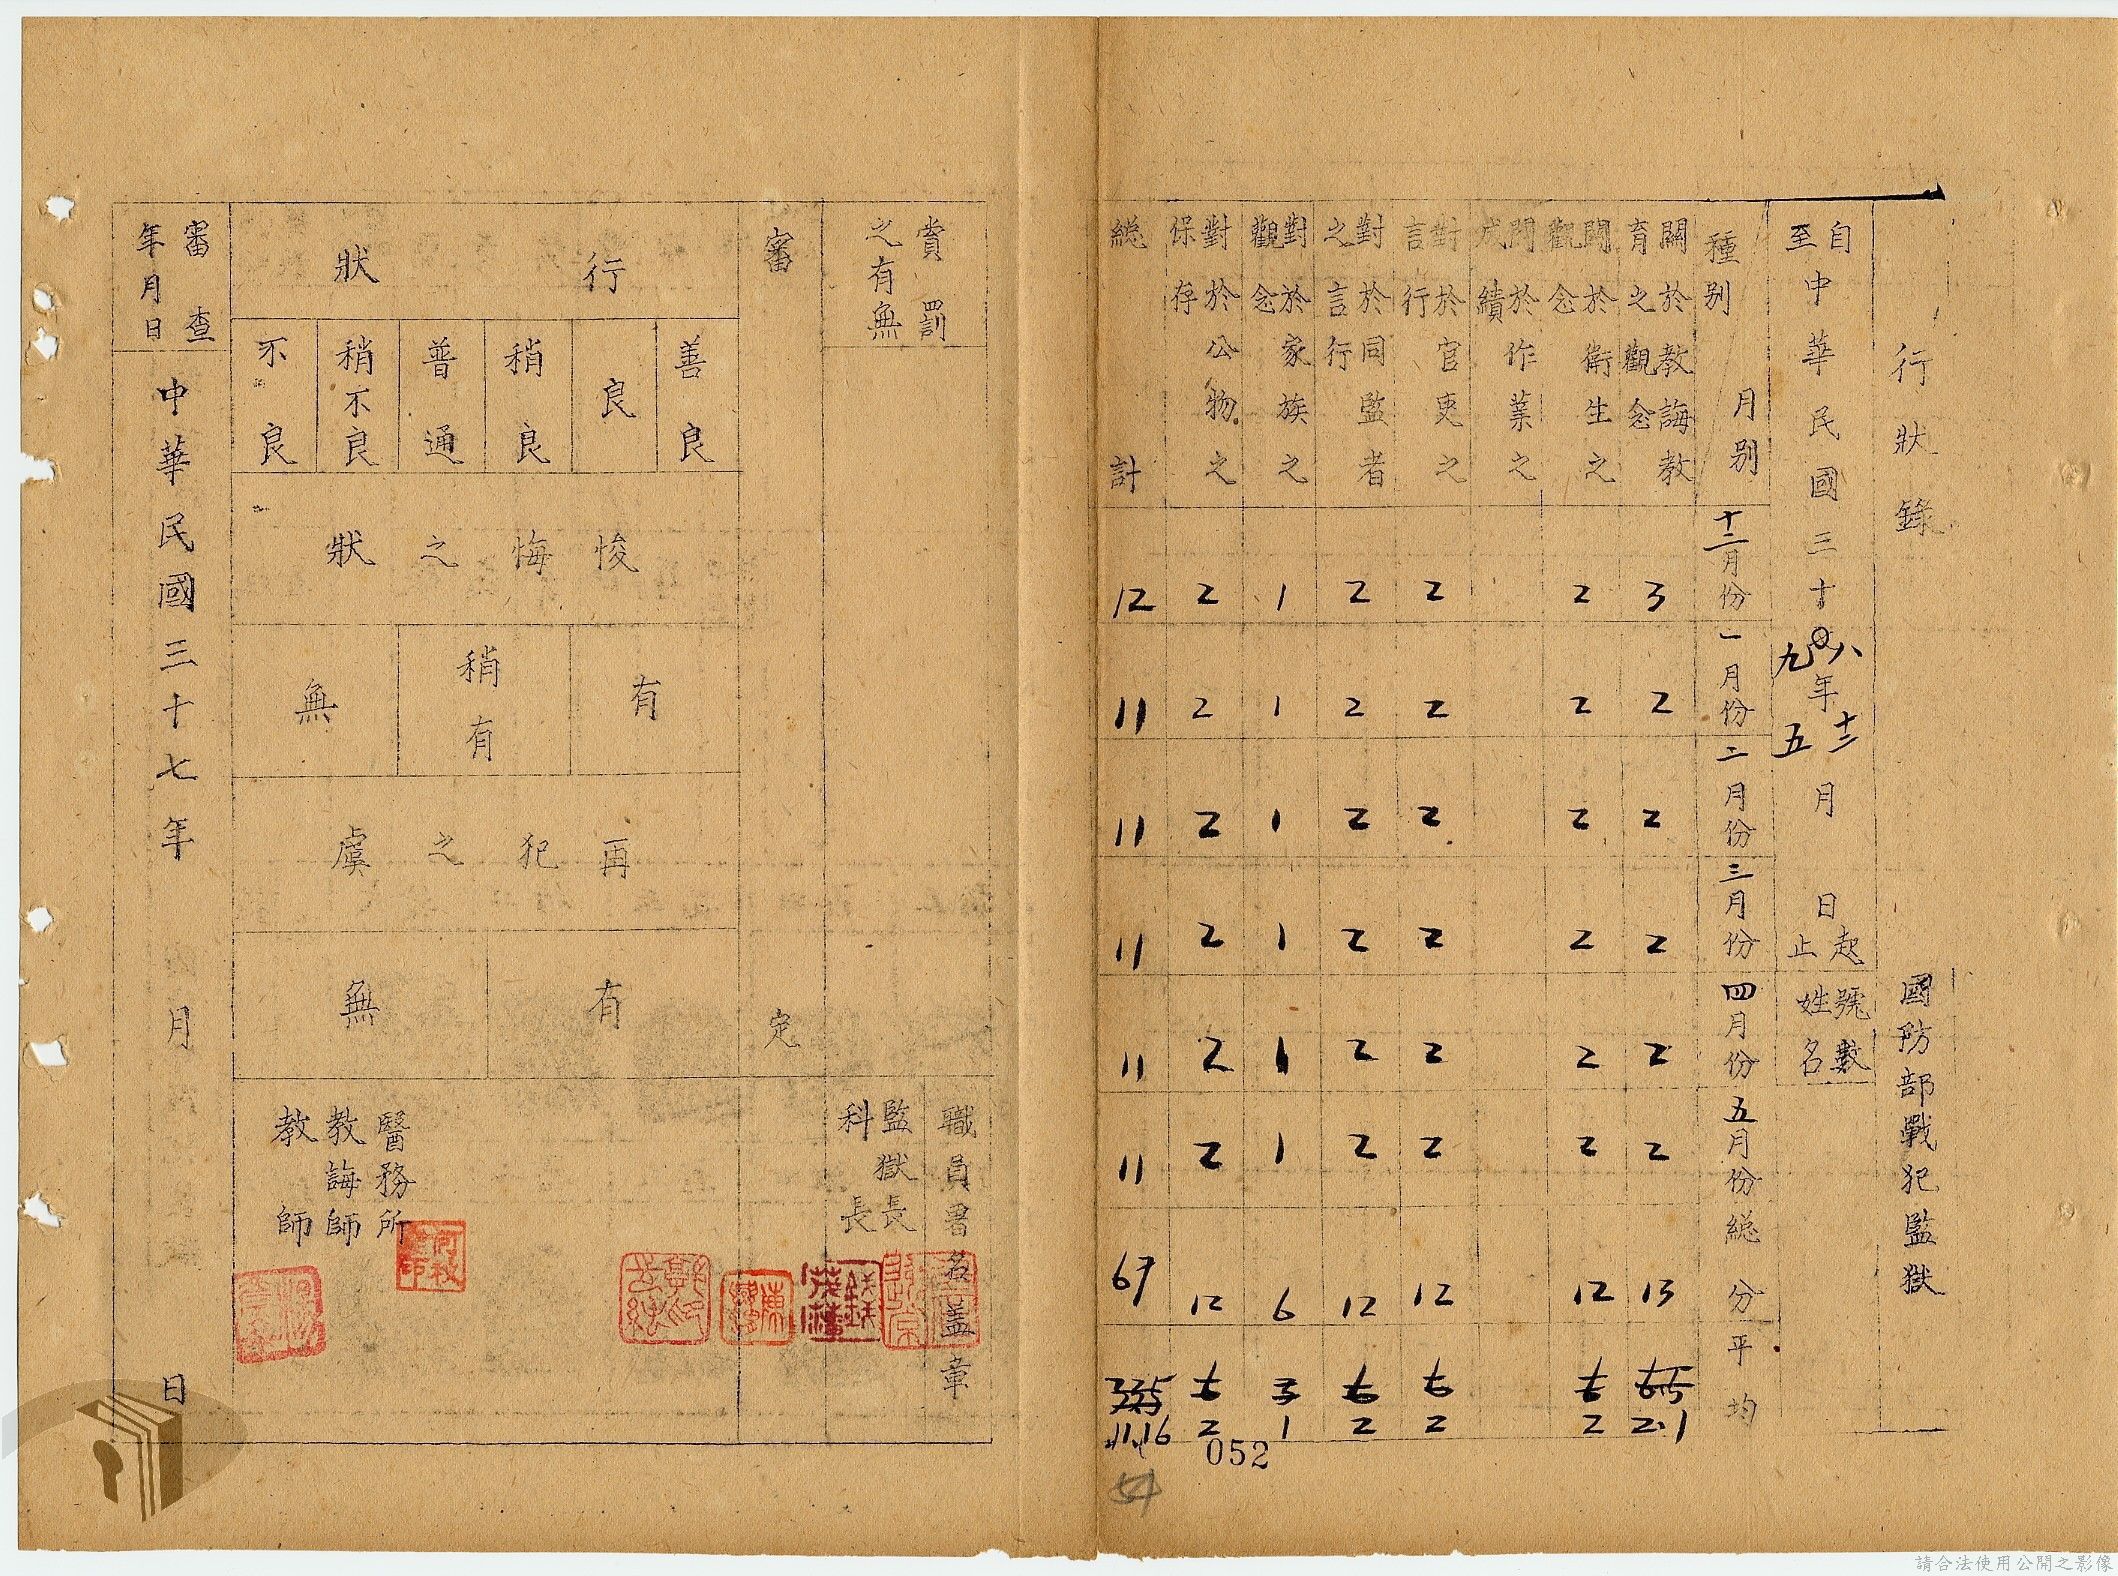 行狀錄
國防部戰犯監獄
自至中華民國三十八九年十二五月 日起止
號數
姓名
種別
月別
十二月份
一月份
二月份
三月份
四月份
五月份
總分
平均
關於教誨教育之觀念
3
2
2
2
2
2
13
6.5
2.1
關於衛生之觀念
2
2
2
2
2
2
12
6
2
關於作業之成績
對於官吏之言行
2
2
2
2
2
2
12
6
2
對於同監者之言行
2
2
2
2
2
2
12
6
2
對於家族之觀念
1
1
1
1
1
1
6
3
1
對於公物之保存
2
2
2
2
2
2
12
6
2
總計
12
11
11
11
11
11
67
11.16
052
54
賞罰之有無
審定
行狀
善良
良
稍良
普通
稍不良
不良
悛悔之狀
有
稍有
無
再犯之虞
有
無
職員署名蓋章
監獄長
科長
醫務所
教誨師
教師
審查年月日
中華民國三十七年 月 日
請合法使用公開之影像